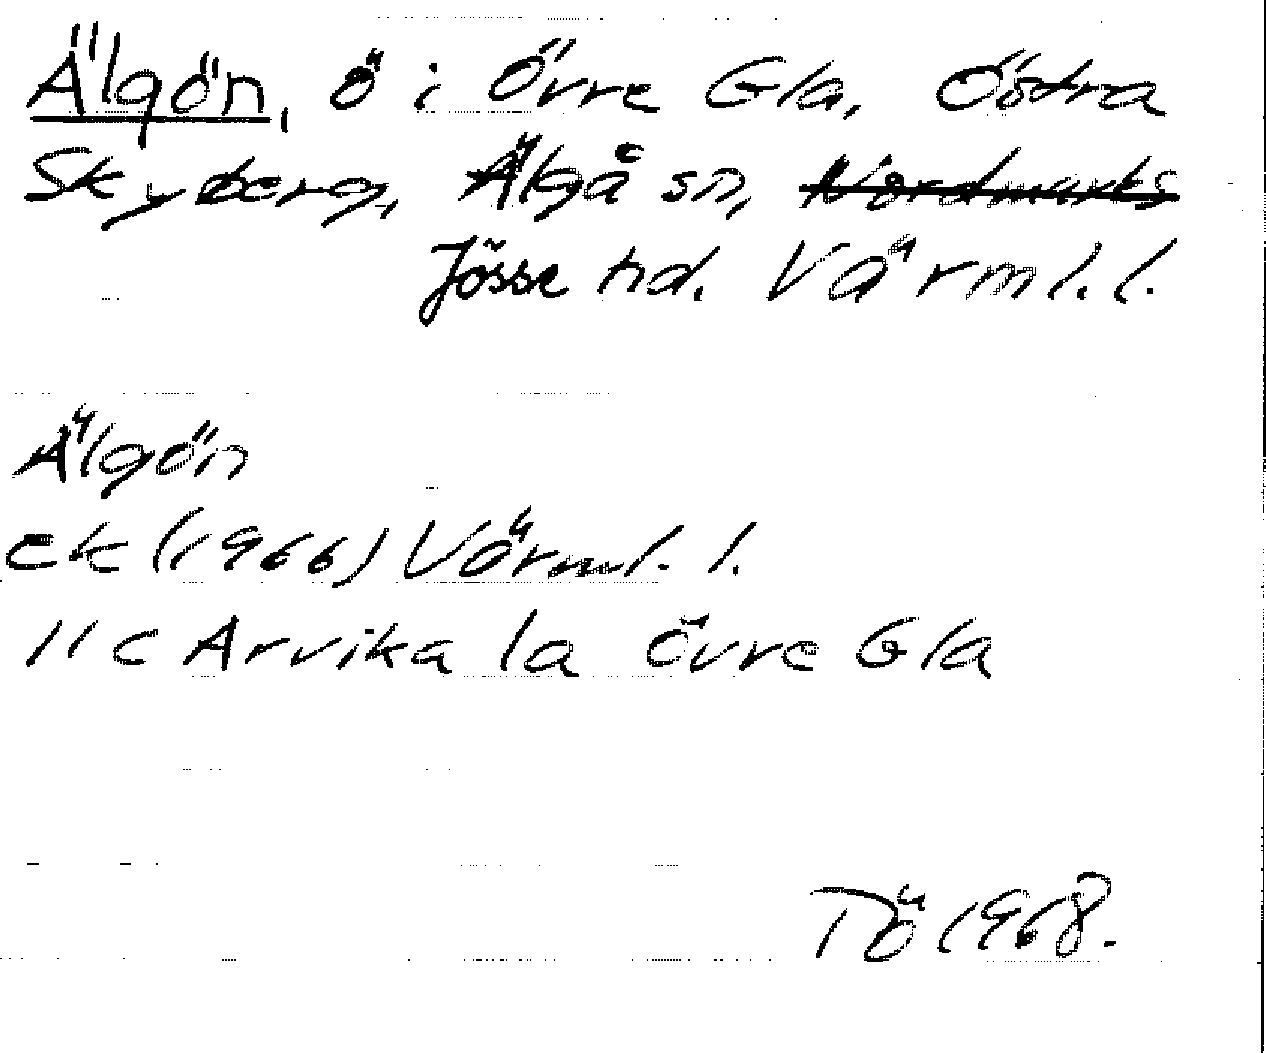 Älgön, ö i Övre Gla, Östra
Skyberg, Älgå sn, Nordmarks
Jösse hd. Värml. l.
Älgön
ek (1966) Värml. l.
11 c Arvika 1a Övre Gla
Tö 1968.